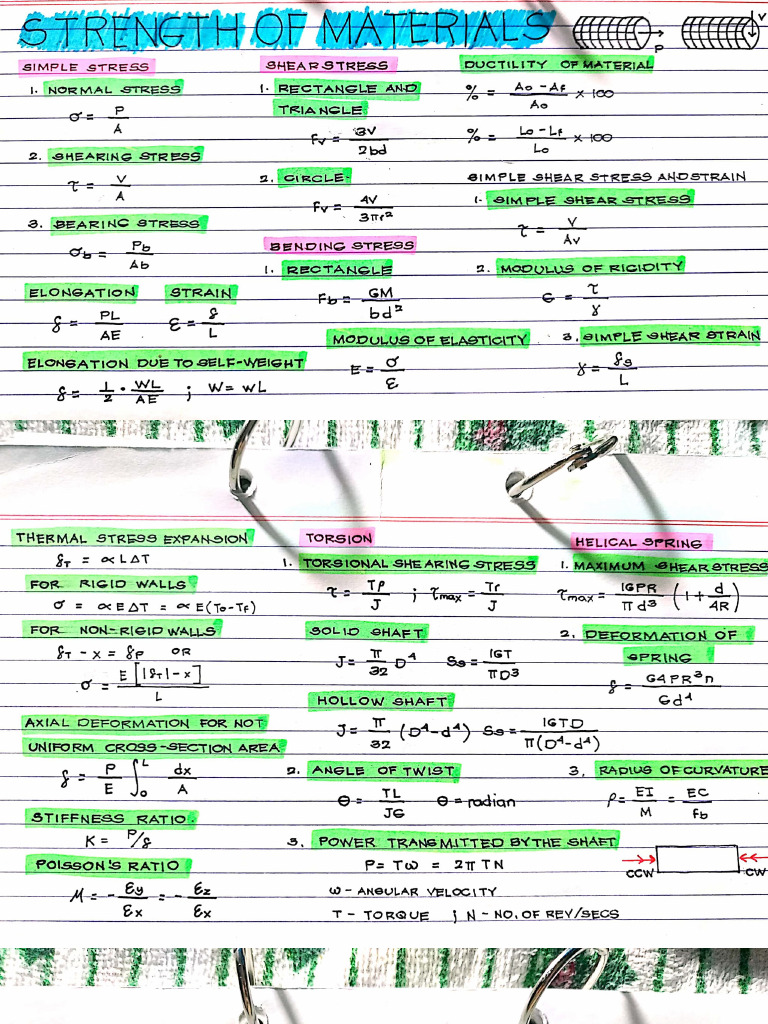 STRENGTH OF MATERIALS
P
V
SIMPLE STRESS
1. NORMAL STRESS
σ = P/A
2. SHEARING STRESS
τ = V/A
3. BEARING STRESS
σb = Pb/Ab
ELONGATION
δ = PL/AE
STRAIN
ε = δ/L
ELONGATION DUE TO SELF-WEIGHT
δ = 1/2 · WL/AE ; W = wL
SHEAR STRESS
1. RECTANGLE AND
TRIANGLE
Fv = 3V/2bd
2. CIRCLE
Fv = 4V/3πr²
BENDING STRESS
1. RECTANGLE
Fb = 6M/bd²
MODULUS OF ELASTICITY
E = σ/ε
DUCTILITY OF MATERIAL
% = Ao - Af/Ao × 100
% = Lo - Lf/Lo × 100
SIMPLE SHEAR STRESS AND STRAIN
1. SIMPLE SHEAR STRESS
τ = V/Av
2. MODULUS OF RIGIDITY
G = τ/γ
3. SIMPLE SHEAR STRAIN
γ = δs/L
THERMAL STRESS EXPANSION
δT = αLΔT
FOR RIGID WALLS
σ = αEΔT = αE(To-Tf)
FOR NON-RIGID WALLS
δT - x = δp OR
σ = E[|δT|-x]/L
AXIAL DEFORMATION FOR NOT
UNIFORM CROSS-SECTION AREA
δ = P/E ∫₀ᴸ dx/A
STIFFNESS RATIO
K = P/δ
POISSON'S RATIO
μ = - εy/εx = - εz/εx
TORSION
1. TORSIONAL SHEARING STRESS
τ = Tρ/J ; τmax = Tr/J
SOLID SHAFT
J = π/32 D⁴ Ss = 16T/πD³
HOLLOW SHAFT
J = π/32 (D⁴-d⁴) Ss = 16TD/π(D⁴-d⁴)
2. ANGLE OF TWIST
θ = TL/JG θ = radian
3. POWER TRANSMITTED BY THE SHAFT
P = Tω = 2πTN
ω - ANGULAR VELOCITY
T - TORQUE ; N - NO. OF REV/SECS
HELICAL SPRING
1. MAXIMUM SHEAR STRESS
τmax = 16PR/πd³ (1 + d/4R)
2. DEFORMATION OF
SPRING
δ = 64PR³n/Gd⁴
3. RADIUS OF CURVATURE
ρ = EI/M = EC/fb
CCW
CW